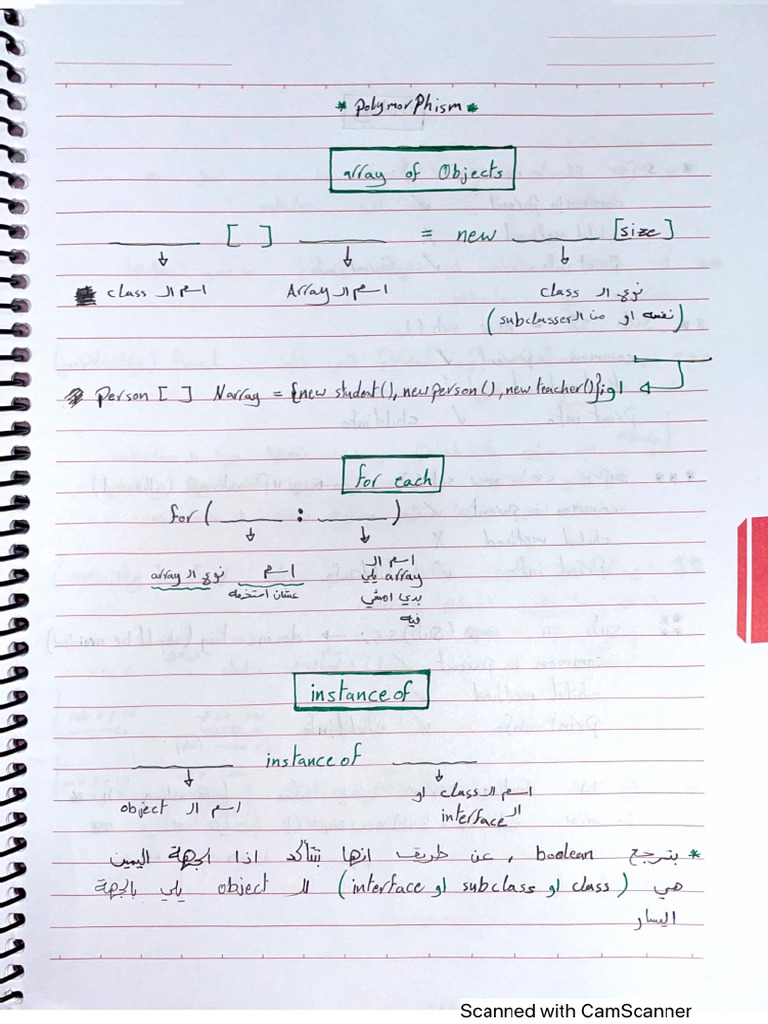 * polymorphism *
array of Objects
______ [ ] ______ = new ______ [size]
اسم الـ class
اسم الـ Array
نوع الـ class
(نفسه او من الـ subclasses)
Person [ ] Narray = {new student(), new person(), new teacher()}; او
for each
for ( ______ : ______ )
نوع الـ array اسم
عشان استخدمه
اسم الـ
array يلي
بدي امشي
فيه
instance of
______ instance of ______
اسم الـ object
اسم الـ class او
الـ interface
* بترجع boolean , عن طريق انها بتتأكد اذا الجهة اليمين
هي (class او subclass او interface) للـ object يلي بالجهة
اليسار
Scanned with CamScanner